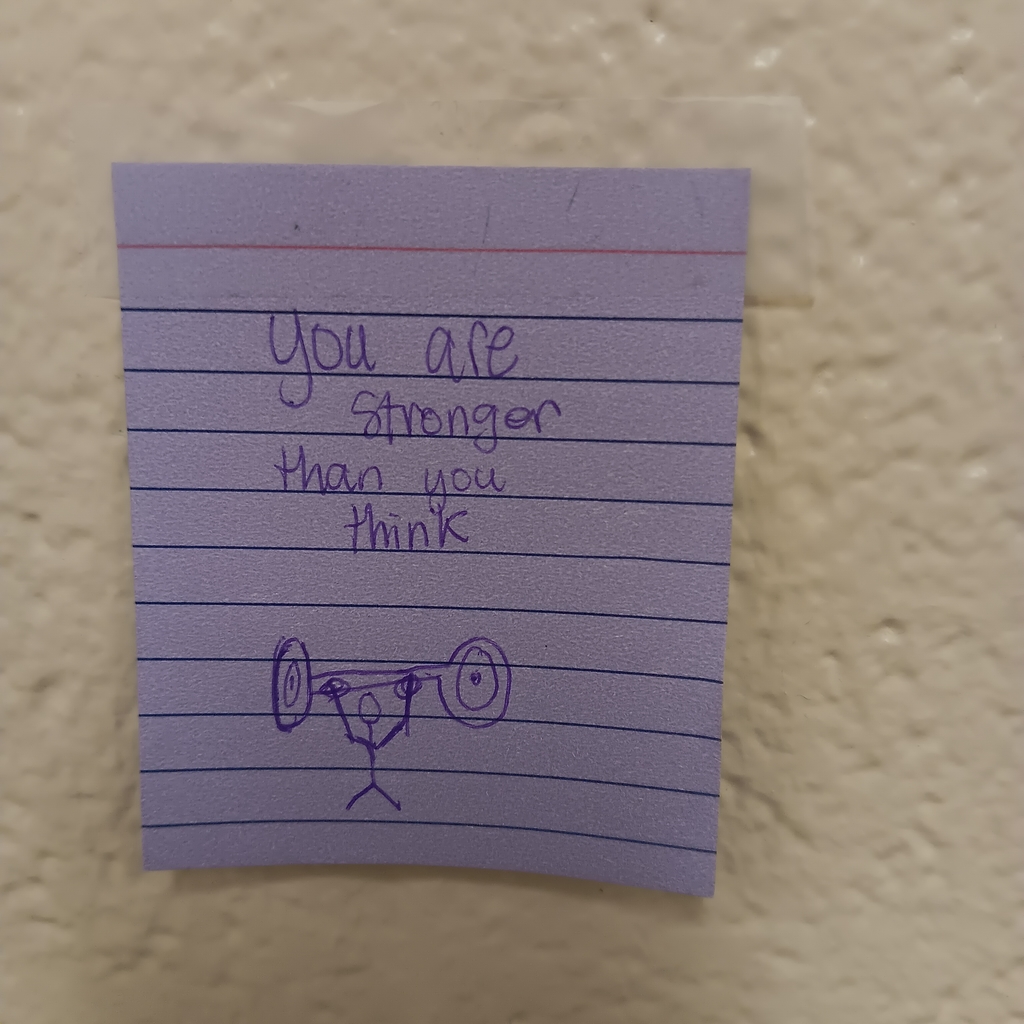 you are
stronger
than you
think